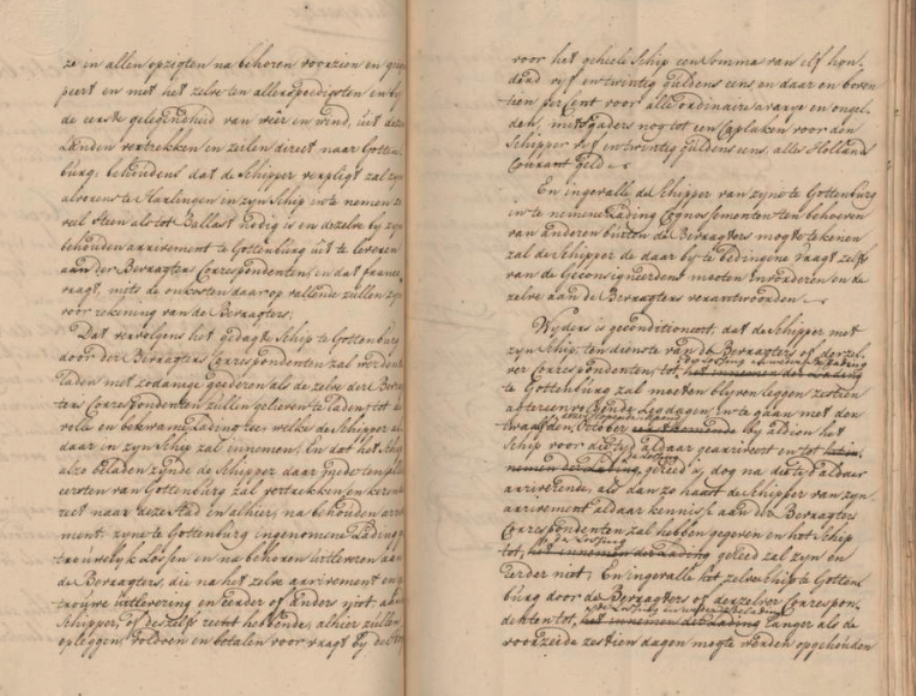 ze in allen opzigten na behoren voorzien en
peert en met het zelve ten allerspoedigsten en by
de eerste gelegendheid van weer en wind, uit deze
Landen vertrekken en zeilen direct naar Gotten-
burg; behoudens dat de Schipper verpligt zal zyn
alvorens te Harlingen in zyn Schip in te nemen zo
veel steen als tot Ballast nodig is en dezelve by zyn
behouden arrivement te Gottenburg uit te leveren
aan der Bevragters Correspondenten, en dat franco
vragt, mits de onkosten daar op vallende zullen zyn
voor rekening van de Bevragters;
Dat vervolgens het gedagte Schip te Gottenburg
door der Bevragters Correspondenten zal werden
laden met zodanige goederen als de zelve der Bevrag-
ters Correspondenten zullen gelieven te laden, tot
volle en bekwame lading toe, welke de Schipper al-
daar in zyn Schip zal innemen, En dat het Schip
alzo beladen zynde de Schipper daar mede ten
eersten van Gottenburg zal vertrekken, en
rect naar deze Stad en alhier, na behouden arrive-
ment, zyne te Gottenburg ingenome Lading
trouwelyk Lossen en na behoren uitleveren aan
de Bevragters, die na het zelve arrivement en
trouwe uitlevering en eender of anders niet, aan
Schipper, of deszelfs recht hebbende, alhier zullen
opleggen, voldoen en betalen voor vragt by
voor het geheele Schip een Somma van elf hon-
derd vyf en twintig guldens eens, en daar en boven
tien per Cent voor alle ordinaire avarye en ongel-
den, mitsgaders nog tot een Caplaken voor den
Schipper vyf en twintig guldens eens, alles Hollands
Courant geld
En ingevalle de Schipper van zyne te Gottenburg
in te nemene Lading Cognossementen ten behoeve
van anderen buiten de Bevragters mogte tekenen
zal de Schipper de daar by te bedingene vragt zelfs
van de Geconsigneerdens moeten invorderen en de
zelve aan de Bevragters verantwoorden
Wyders is geconditioneert, dat de Schipper met
zyn Schip, ten dienste van de Bevragters of derzel-
de lossing en weder belading
ver Correspondenten, tot, het innemen der Lading
te Gottenburg zal moeten blyven leggen zestien
agtereenvolgende Legdagen, In te gaan met den
twaalfden October eerstkomende by aldien het
Schip voor die tyd aldaar gearriveert en tot het in-
de lossing
nemen der Lading, gereed is, dog na die tyd aldaar
arriverende, als dan zo haast de Schipper van zyn
arrivement aldaar kennisse aan der Bevragters
Correspondenten zal hebben gegeven en het Schip
de Lossing
tot, het innemen der Lading gereed zal zyn en
eerder niet; En ingevalle het zelve Schip te Gotten-
burg door de Bevragters of derzelver Correspon-
de lossing en weder belading
denten tot, het innemen der Lading langer als de
voorzeide zestien dagen mogte werden opgehouden